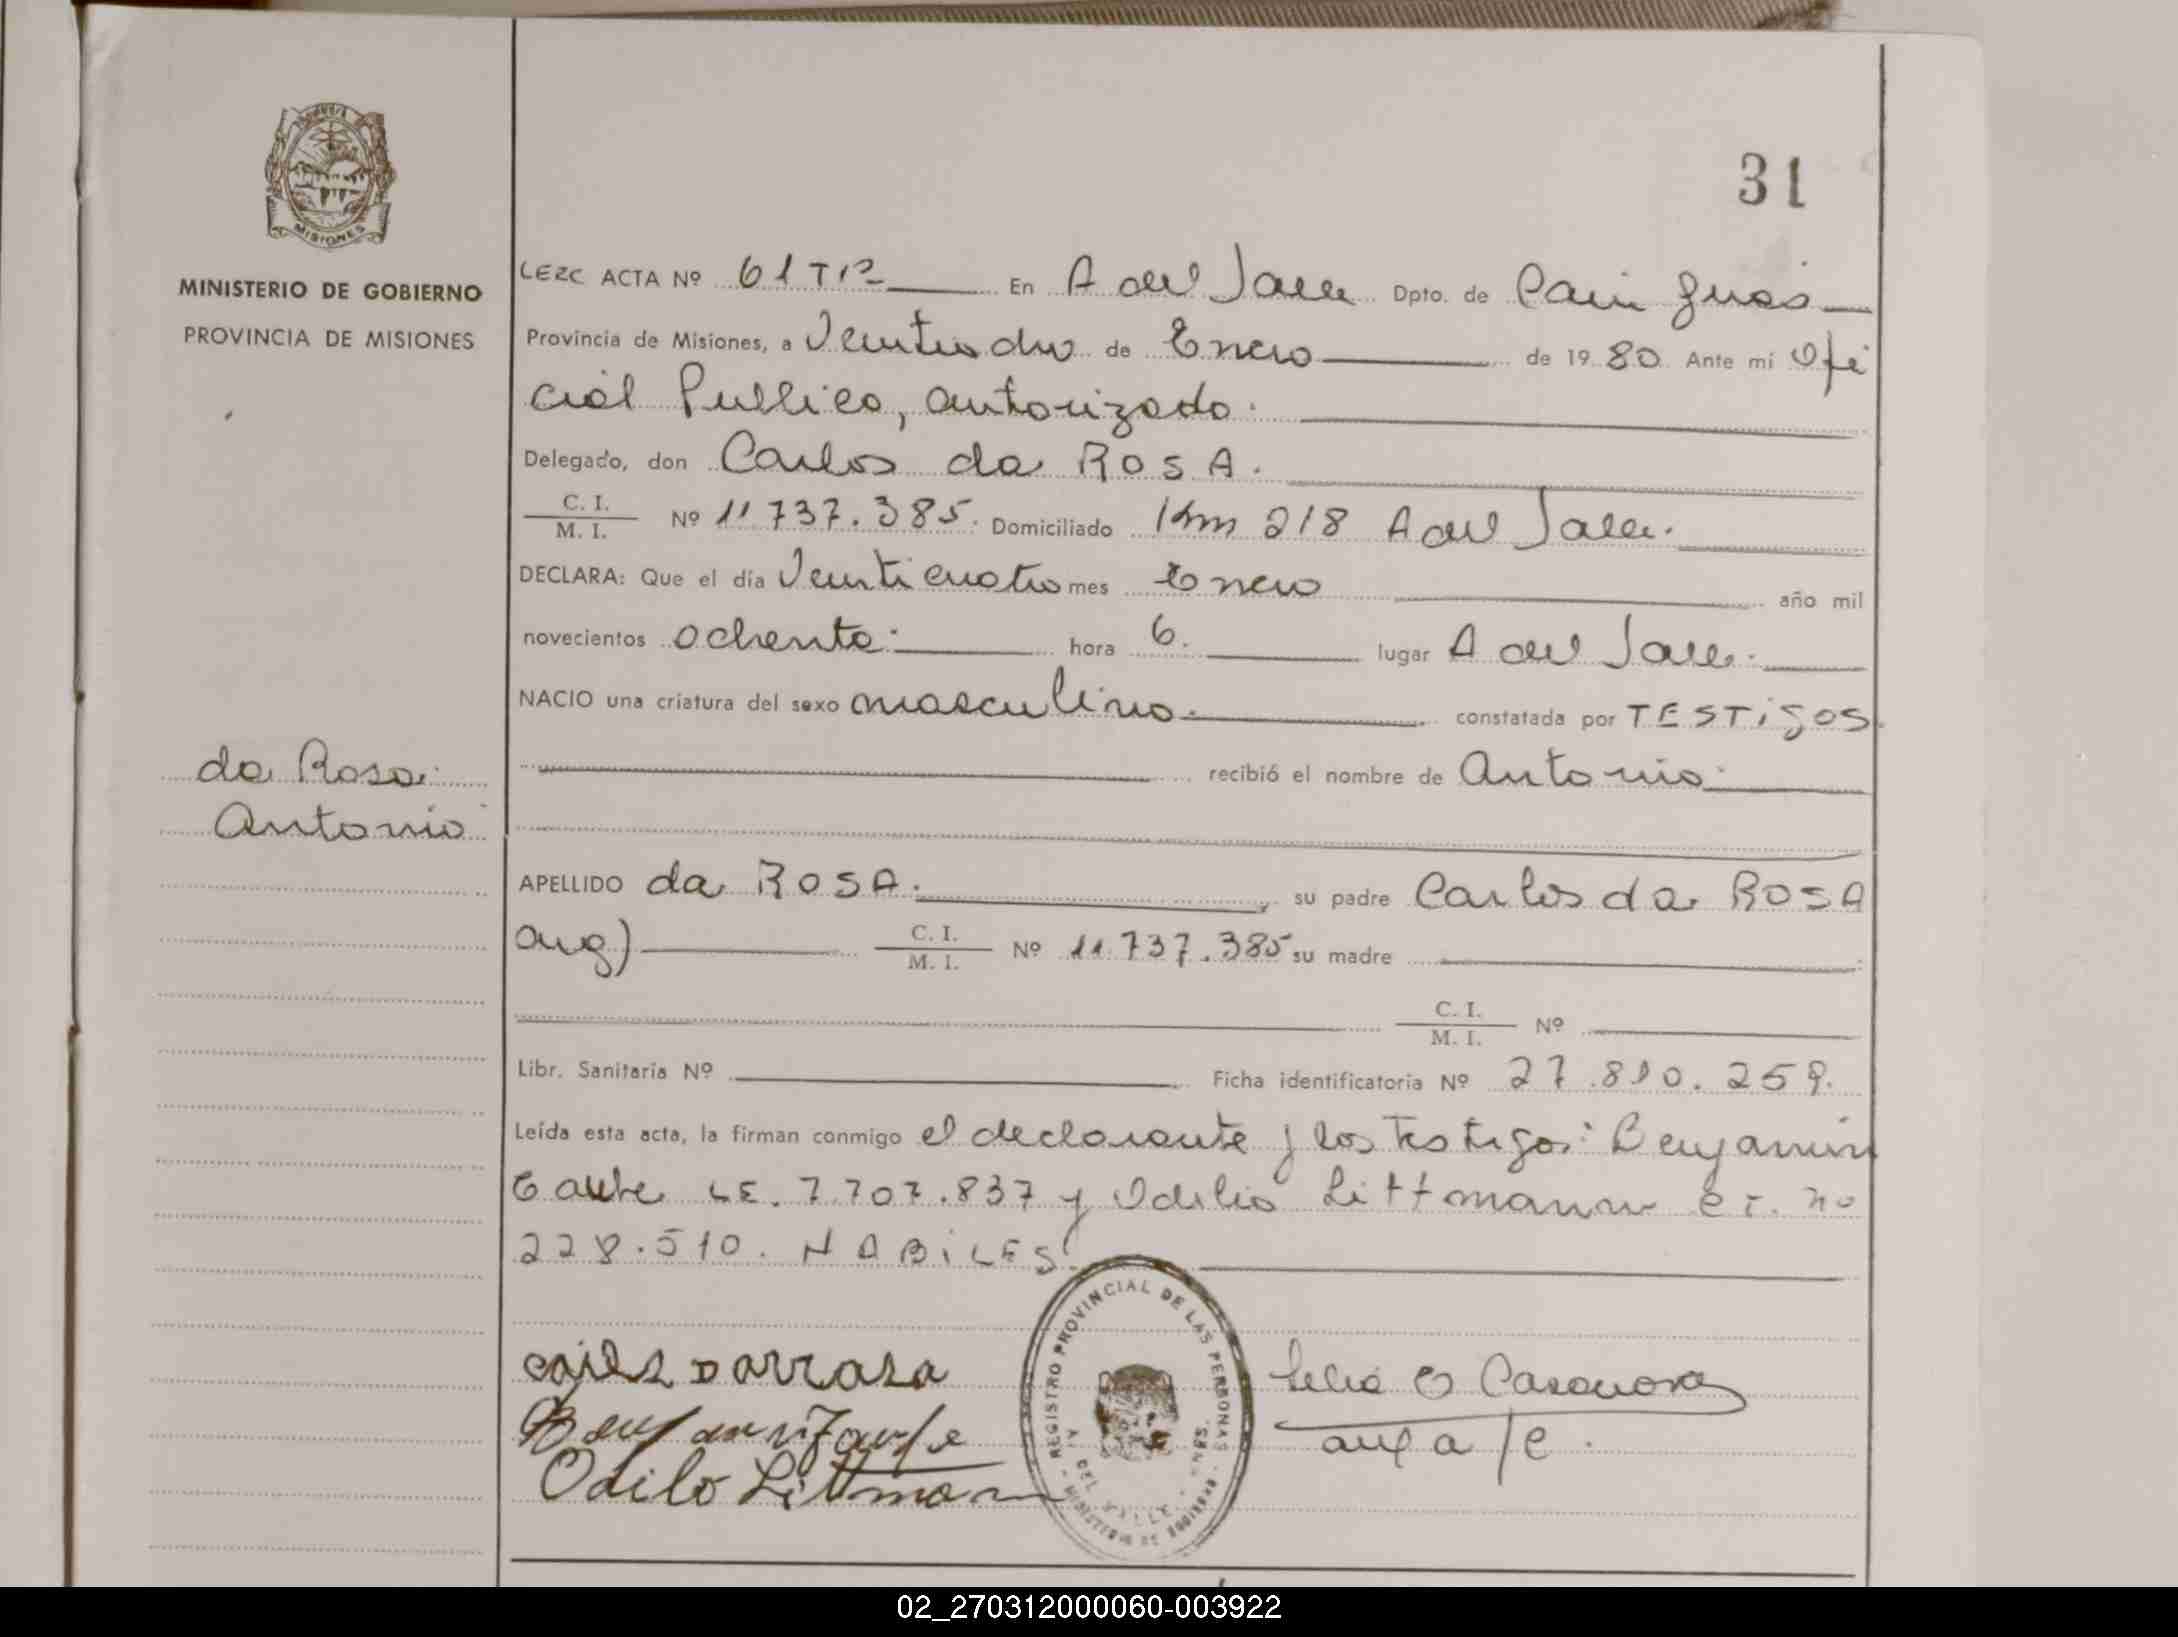 31
MISIONES
MINISTERIO DE GOBIERNO
PROVINCIA DE MISIONES
LEZC ACTA Nº 61 En A del Valle Dpto. de Cain guas
Provincia de Misiones, a de Enero de 1980 Ante mí Ofi
cial Publico, autorizado.
Delegado, don Carlos da ROSA.
C. I.
M. I.
Nº 11 737.385. Domiciliado Km 218 A del Valle.
DECLARA: Que el día Veinticuatro mes Enero año mil
novecientos ochenta. hora 6. lugar A del Valle.
NACIO una criatura del sexo masculino. constatada por TESTigos.
recibió el nombre de Antonio.
da Rosa.
Antonio
APELLIDO da ROSA. su padre Carlos da ROSA
arg) C. I.
M. I.
Nº 11.737.385 su madre
C. I.
M. I.
Nº
Libr. Sanitaria Nº Ficha identificatoria Nº 27.810.259.
Leída esta acta, la firman conmigo el declarante y los testigos: Benjamin
LE. 7.707.837 y Odilio Littmann no
228.510. HABILES
REGISTRO PROVINCIAL DE LAS PERSONAS
Odilo Littman
Casanova
02_270312000060-003922